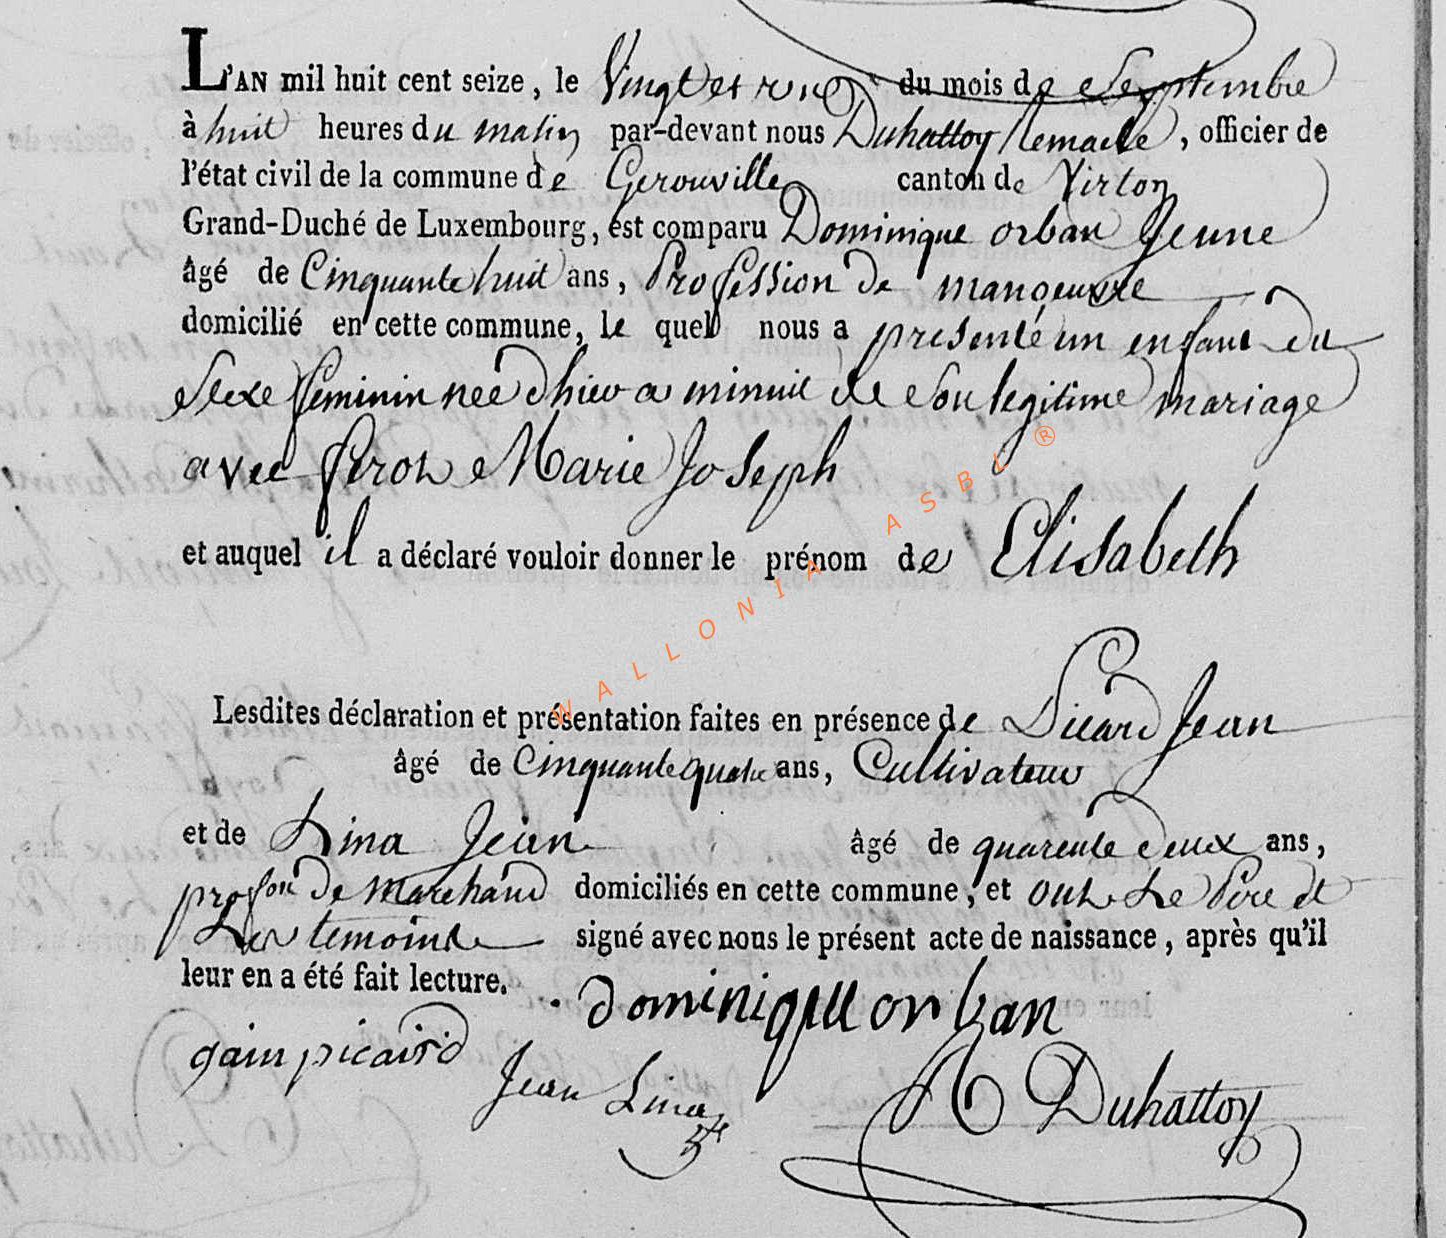 L'AN mil huit cent seize, le Vingt et un du mois de Septembre
à huit heures du matin par-devant nous Duhattoy, officier de
l'état civil de la commune de Gerouville canton de Virton
Grand-Duché de Luxembourg, est comparu Dominique orban Jeune
âgé de Cinquante huit ans, Profession de manoeuvre
domicilié en cette commune, le quel nous a presenté un enfant du
Sexe feminin neé dhier a minuit de Son legitime mariage
avec feron Marie Joseph
et auquel il a déclaré vouloir donner le prénom de Elisabeth
WALLONIA ASBL ®
Lesdites déclaration et présentation faites en présence de Picard Jean
âgé de Cinquante quatre ans, Cultivateur
et de Lina Jean âgé de quarente deux ans,
profon de Marchand domiciliés en cette commune, et ont Le Pere et
Les temoins signé avec nous le présent acte de naissance, après qu'il
leur en a été fait lecture.
dominique orban
gain picaird
Jean Lina
Duhattoy